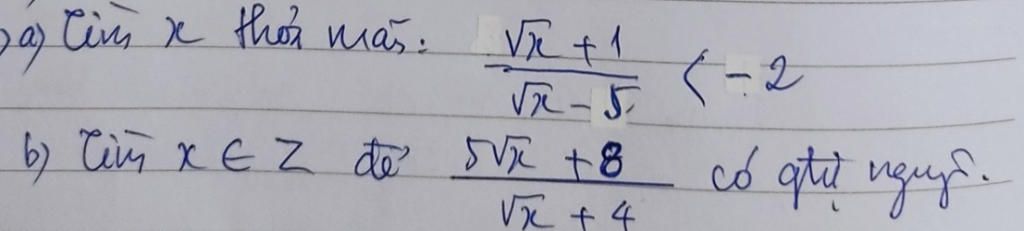 a) Tìm x thỏa mãn: (√x + 1)/(√x - 5) < - 2
b) Tìm x ∈ Z để (5√x + 8)/(√x + 4) có gtrị nguyên.